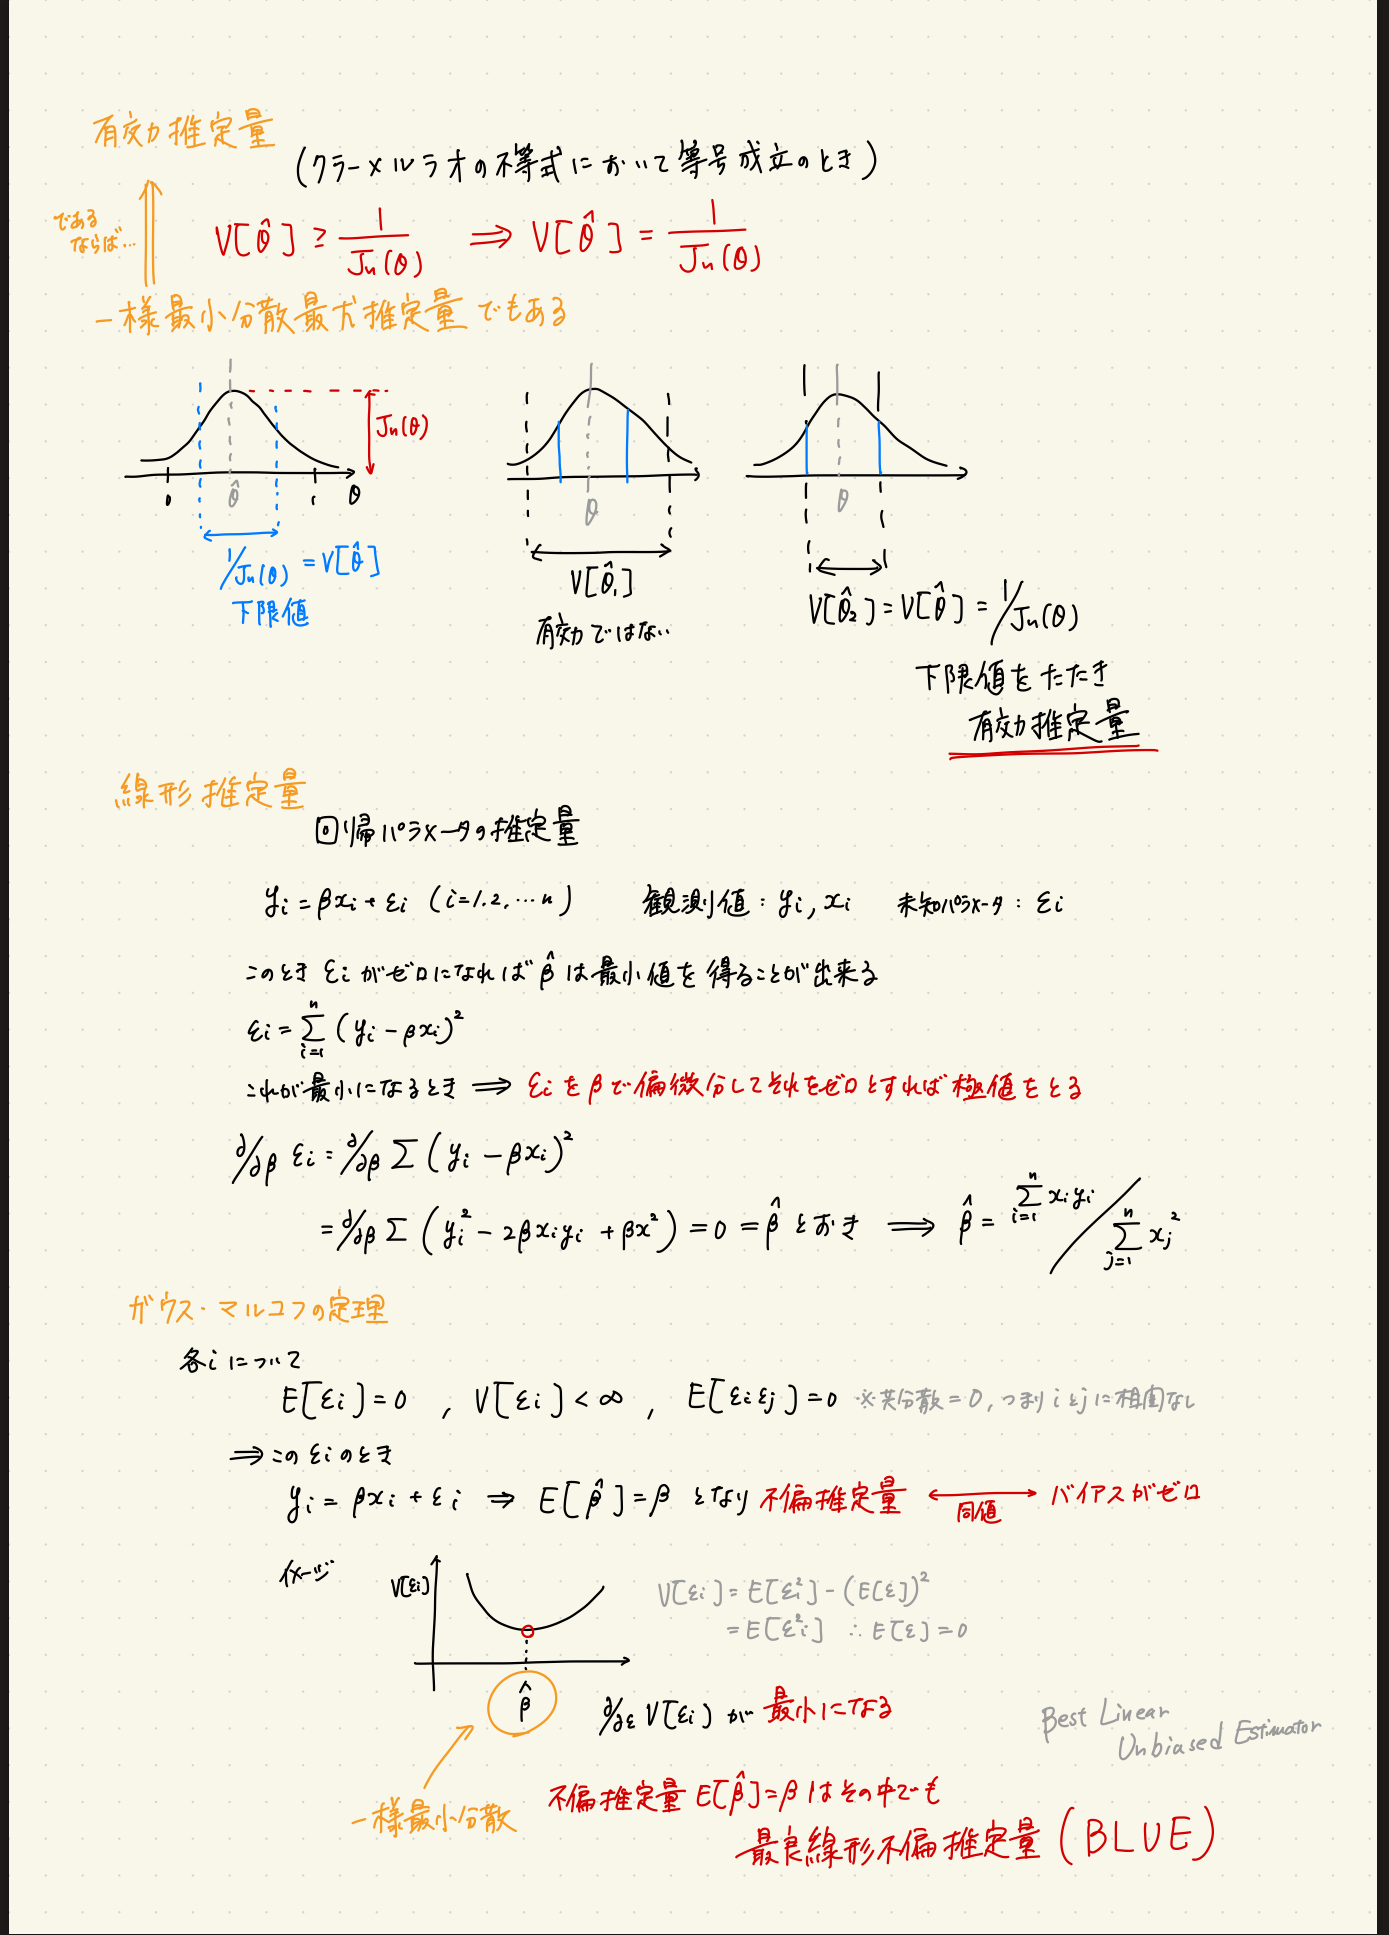 有効推定量
(クラーメルラオの不等式において等号成立のとき)
である
ならば…
V[θ̂] ≥ 1/Jn(θ) ⇒ V[θ̂] = 1/Jn(θ)
一様最小分散最尤推定量 でもある
Jn(θ)
0 θ̂ 1 θ
θ
θ
1/Jn(θ) = V[θ̂]
下限値
V[θ̂₁]
有効ではない
V[θ̂₂] = V[θ̂] = 1/Jn(θ)
下限値をたたき
有効推定量
線形推定量
回帰パラメータの推定量
yi = βxi + εi (i=1.2.…n) 観測値: yi, xi 未知パラメータ: εi
このとき εi がゼロになれば β̂ は最小値を得ることが出来る
εi = Σ_{i=1}^{n} (yi − βxi)²
これが最小になるとき ⇒ εi を β で偏微分してそれをゼロとすれば極値をとる
∂/∂β εi = ∂/∂β Σ (yi − βxi)²
= ∂/∂β Σ (yi² − 2βxiyi + βx²) = 0 = β̂ とおき ⇒ β̂ = Σ_{i=1}^{n} xiyi / Σ_{j=1}^{n} xj²
ガウス・マルコフの定理
各iについて
E[εi] = 0 , V[εi] < ∞ , E[εiεj] = 0 ※共分散=0, つまり i と j に相関なし
⇒ この εi のとき
yi = βxi + εi ⇒ E[β̂] = β となり 不偏推定量 ⟷ バイアスがゼロ
同値
イメージ
V[εi]
V[εi] = E[εi²] − (E[ε])²
= E[εi²] ∴ E[ε] = 0
β̂
∂/∂ε V[εi] が 最小になる
Best Linear
Unbiased Estimator
一様最小分散
不偏推定量 E[β̂]=β はその中でも
最良線形不偏推定量 (BLUE)